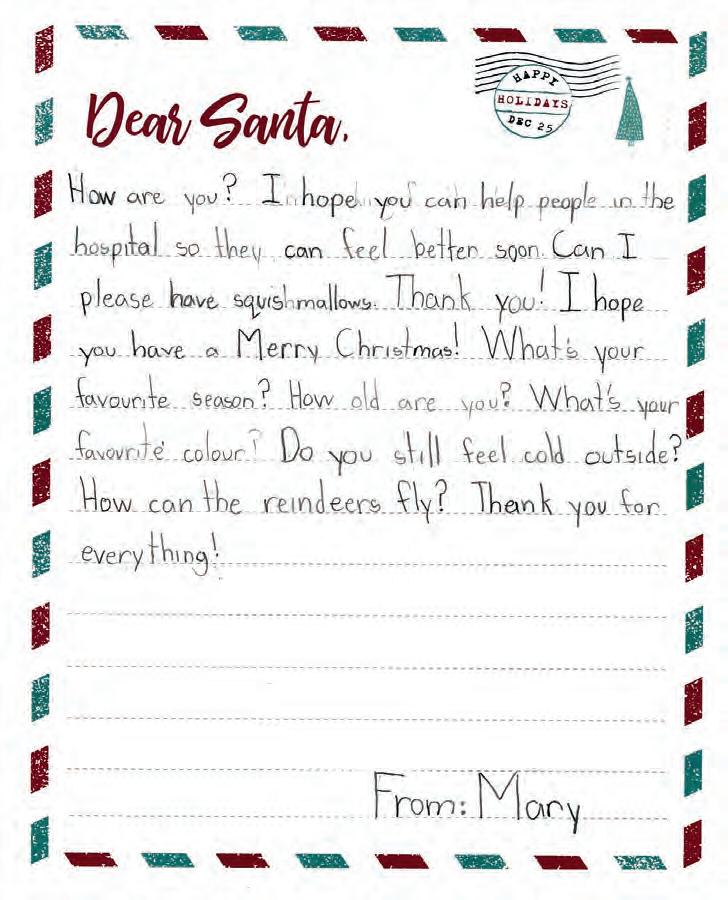 HAPPY
HOLIDAYS
DEC 25
Dear Santa,
How are you? I hope you can help people in the
hospital so they can feel better soon. Can I
please have squishmallows. Thank you! I hope
you have a Merry Christmas! What's your
favourite season? How old are you? What's your
favourite colour? Do you still feel cold outside?
How can the reindeers fly? Thank you for
everything!
From: Mary